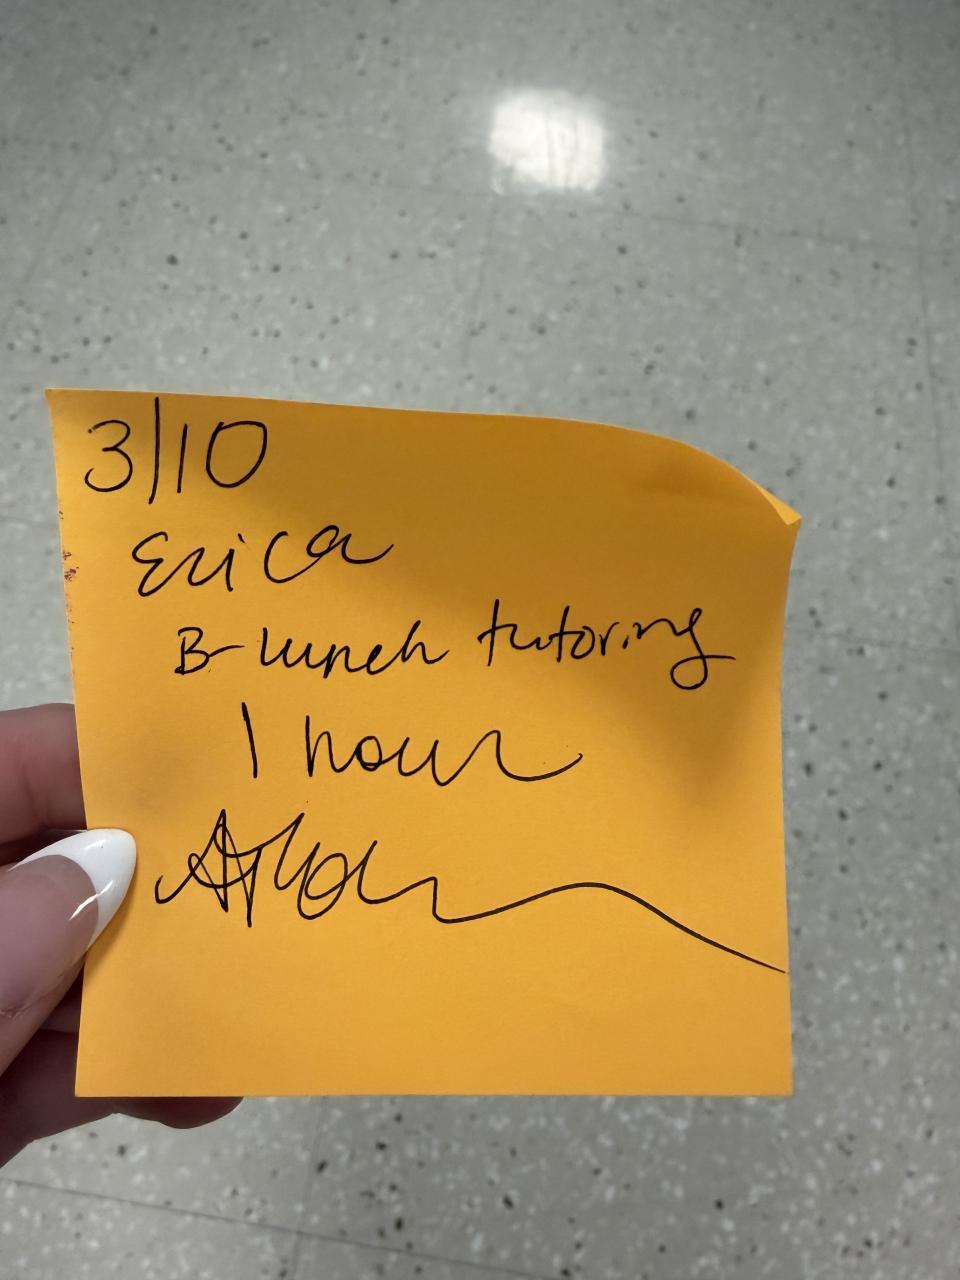 3/10
Erica
B-lunch tutoring
1 hour